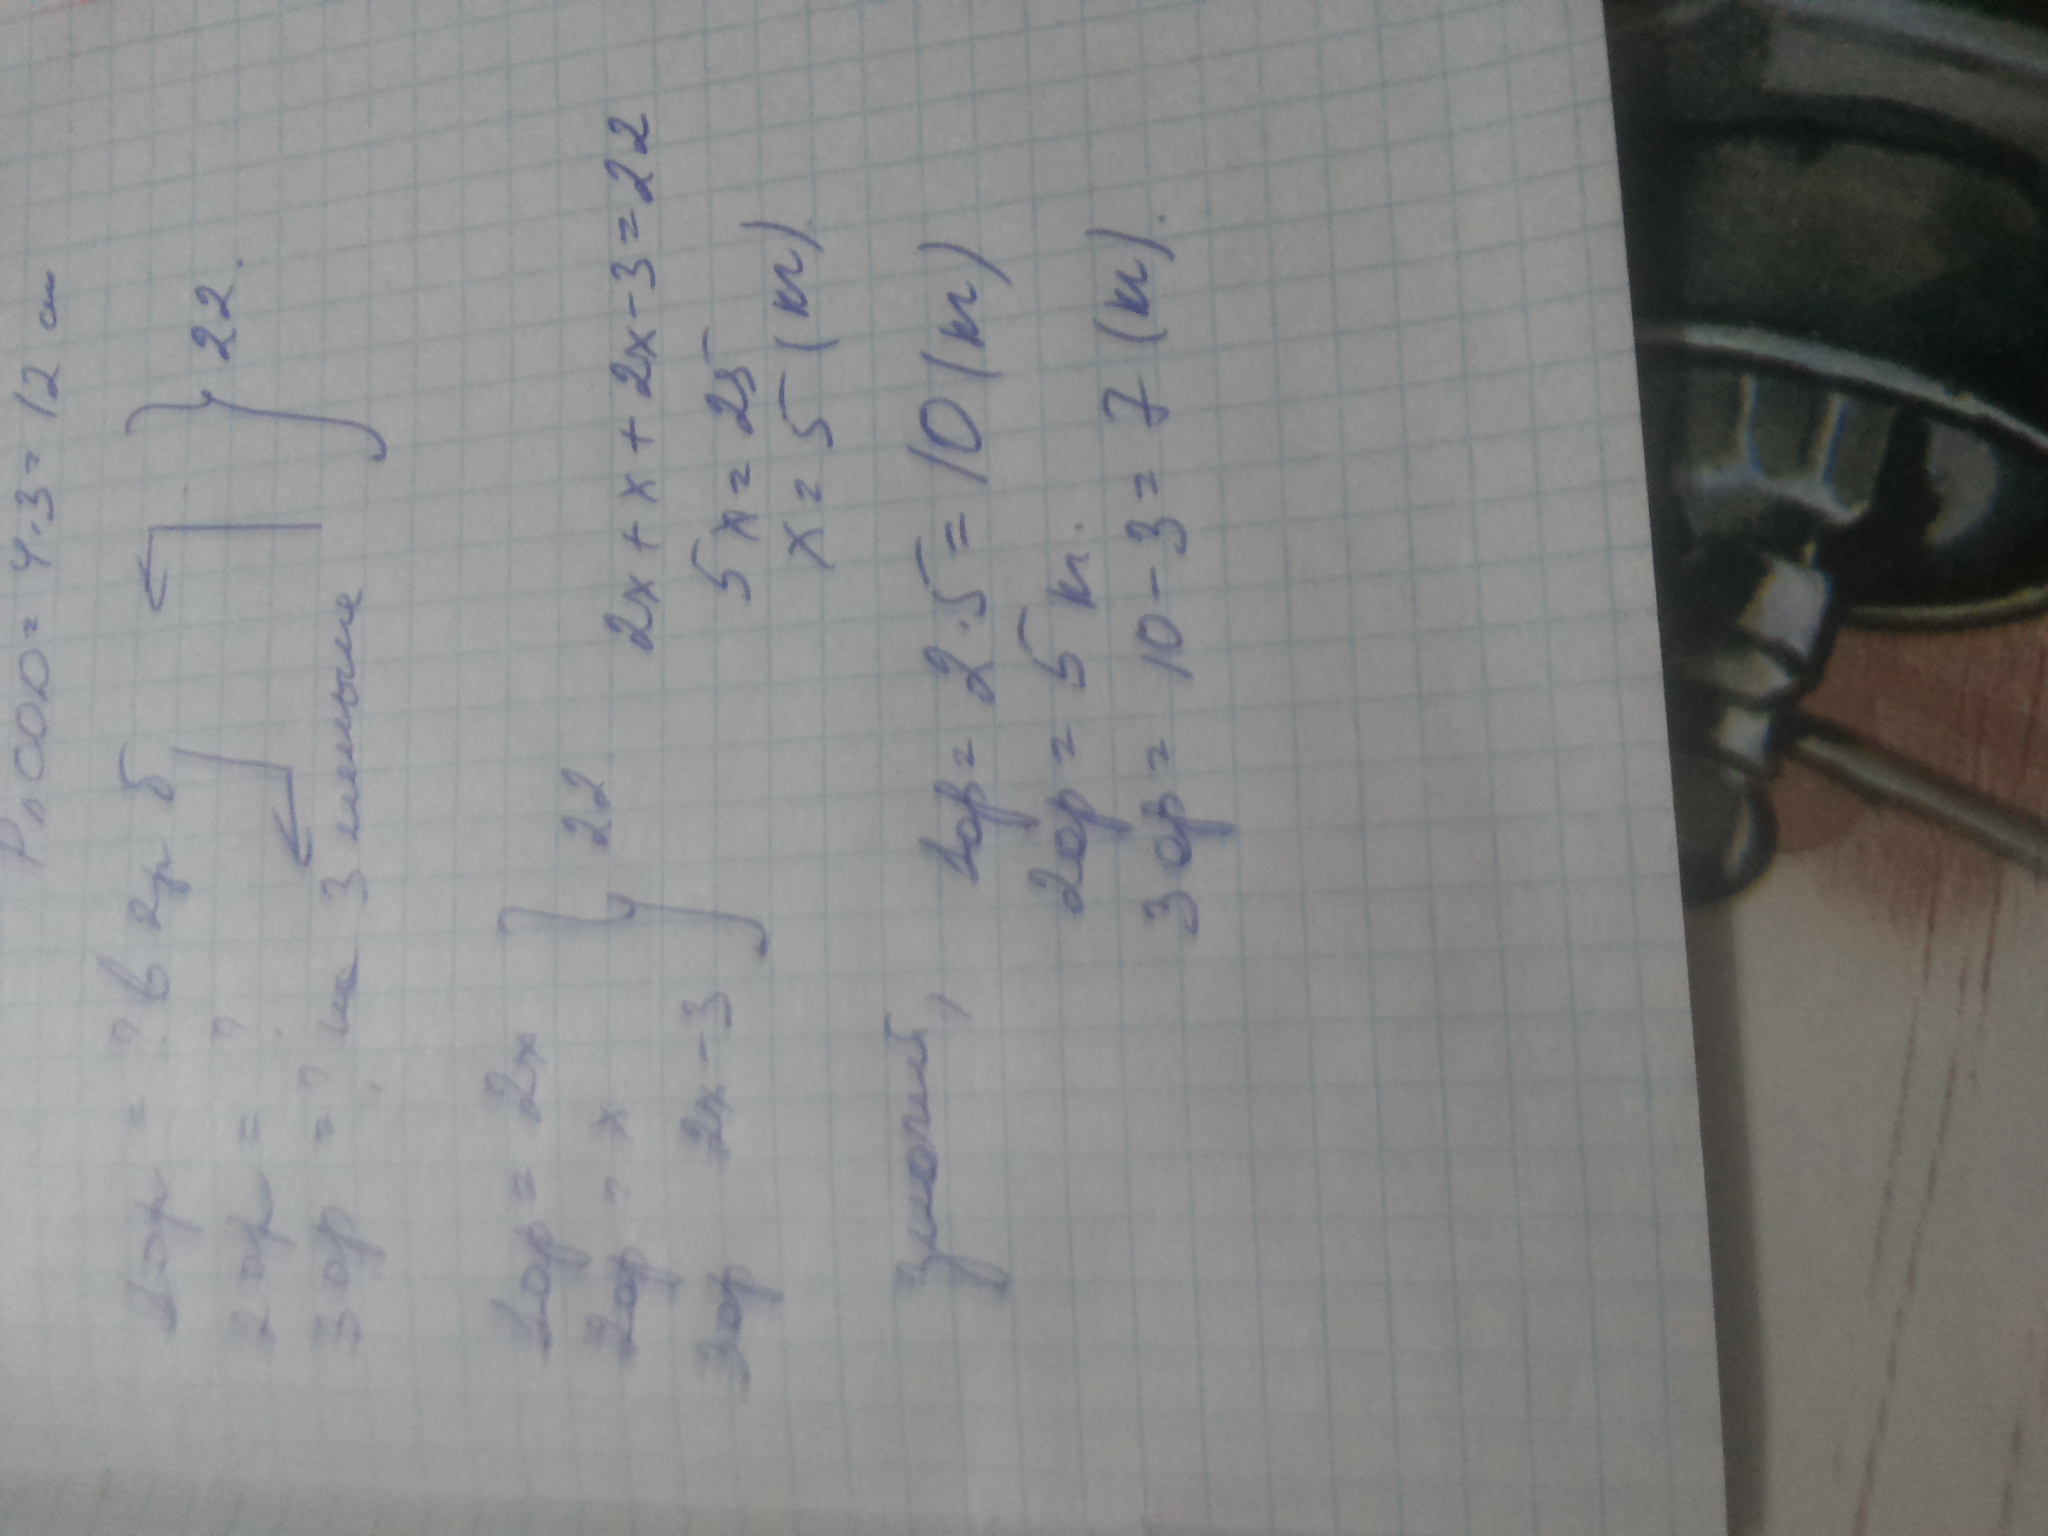 P п COD = 4·3 = 12 см
1 ор = ? в 2 р б
2 ор = ?
3 ор = ? на 3 меньше
} 22.
1 ор = 2x
2 ор - x
3 ор 2x-3
} 22
2x+x+2x-3=22
5x=25
x=5 (кг).
1 ор = 2·5=10 (кг)
2 ор = 5 кг.
3 ор = 10-3=7 (кг).